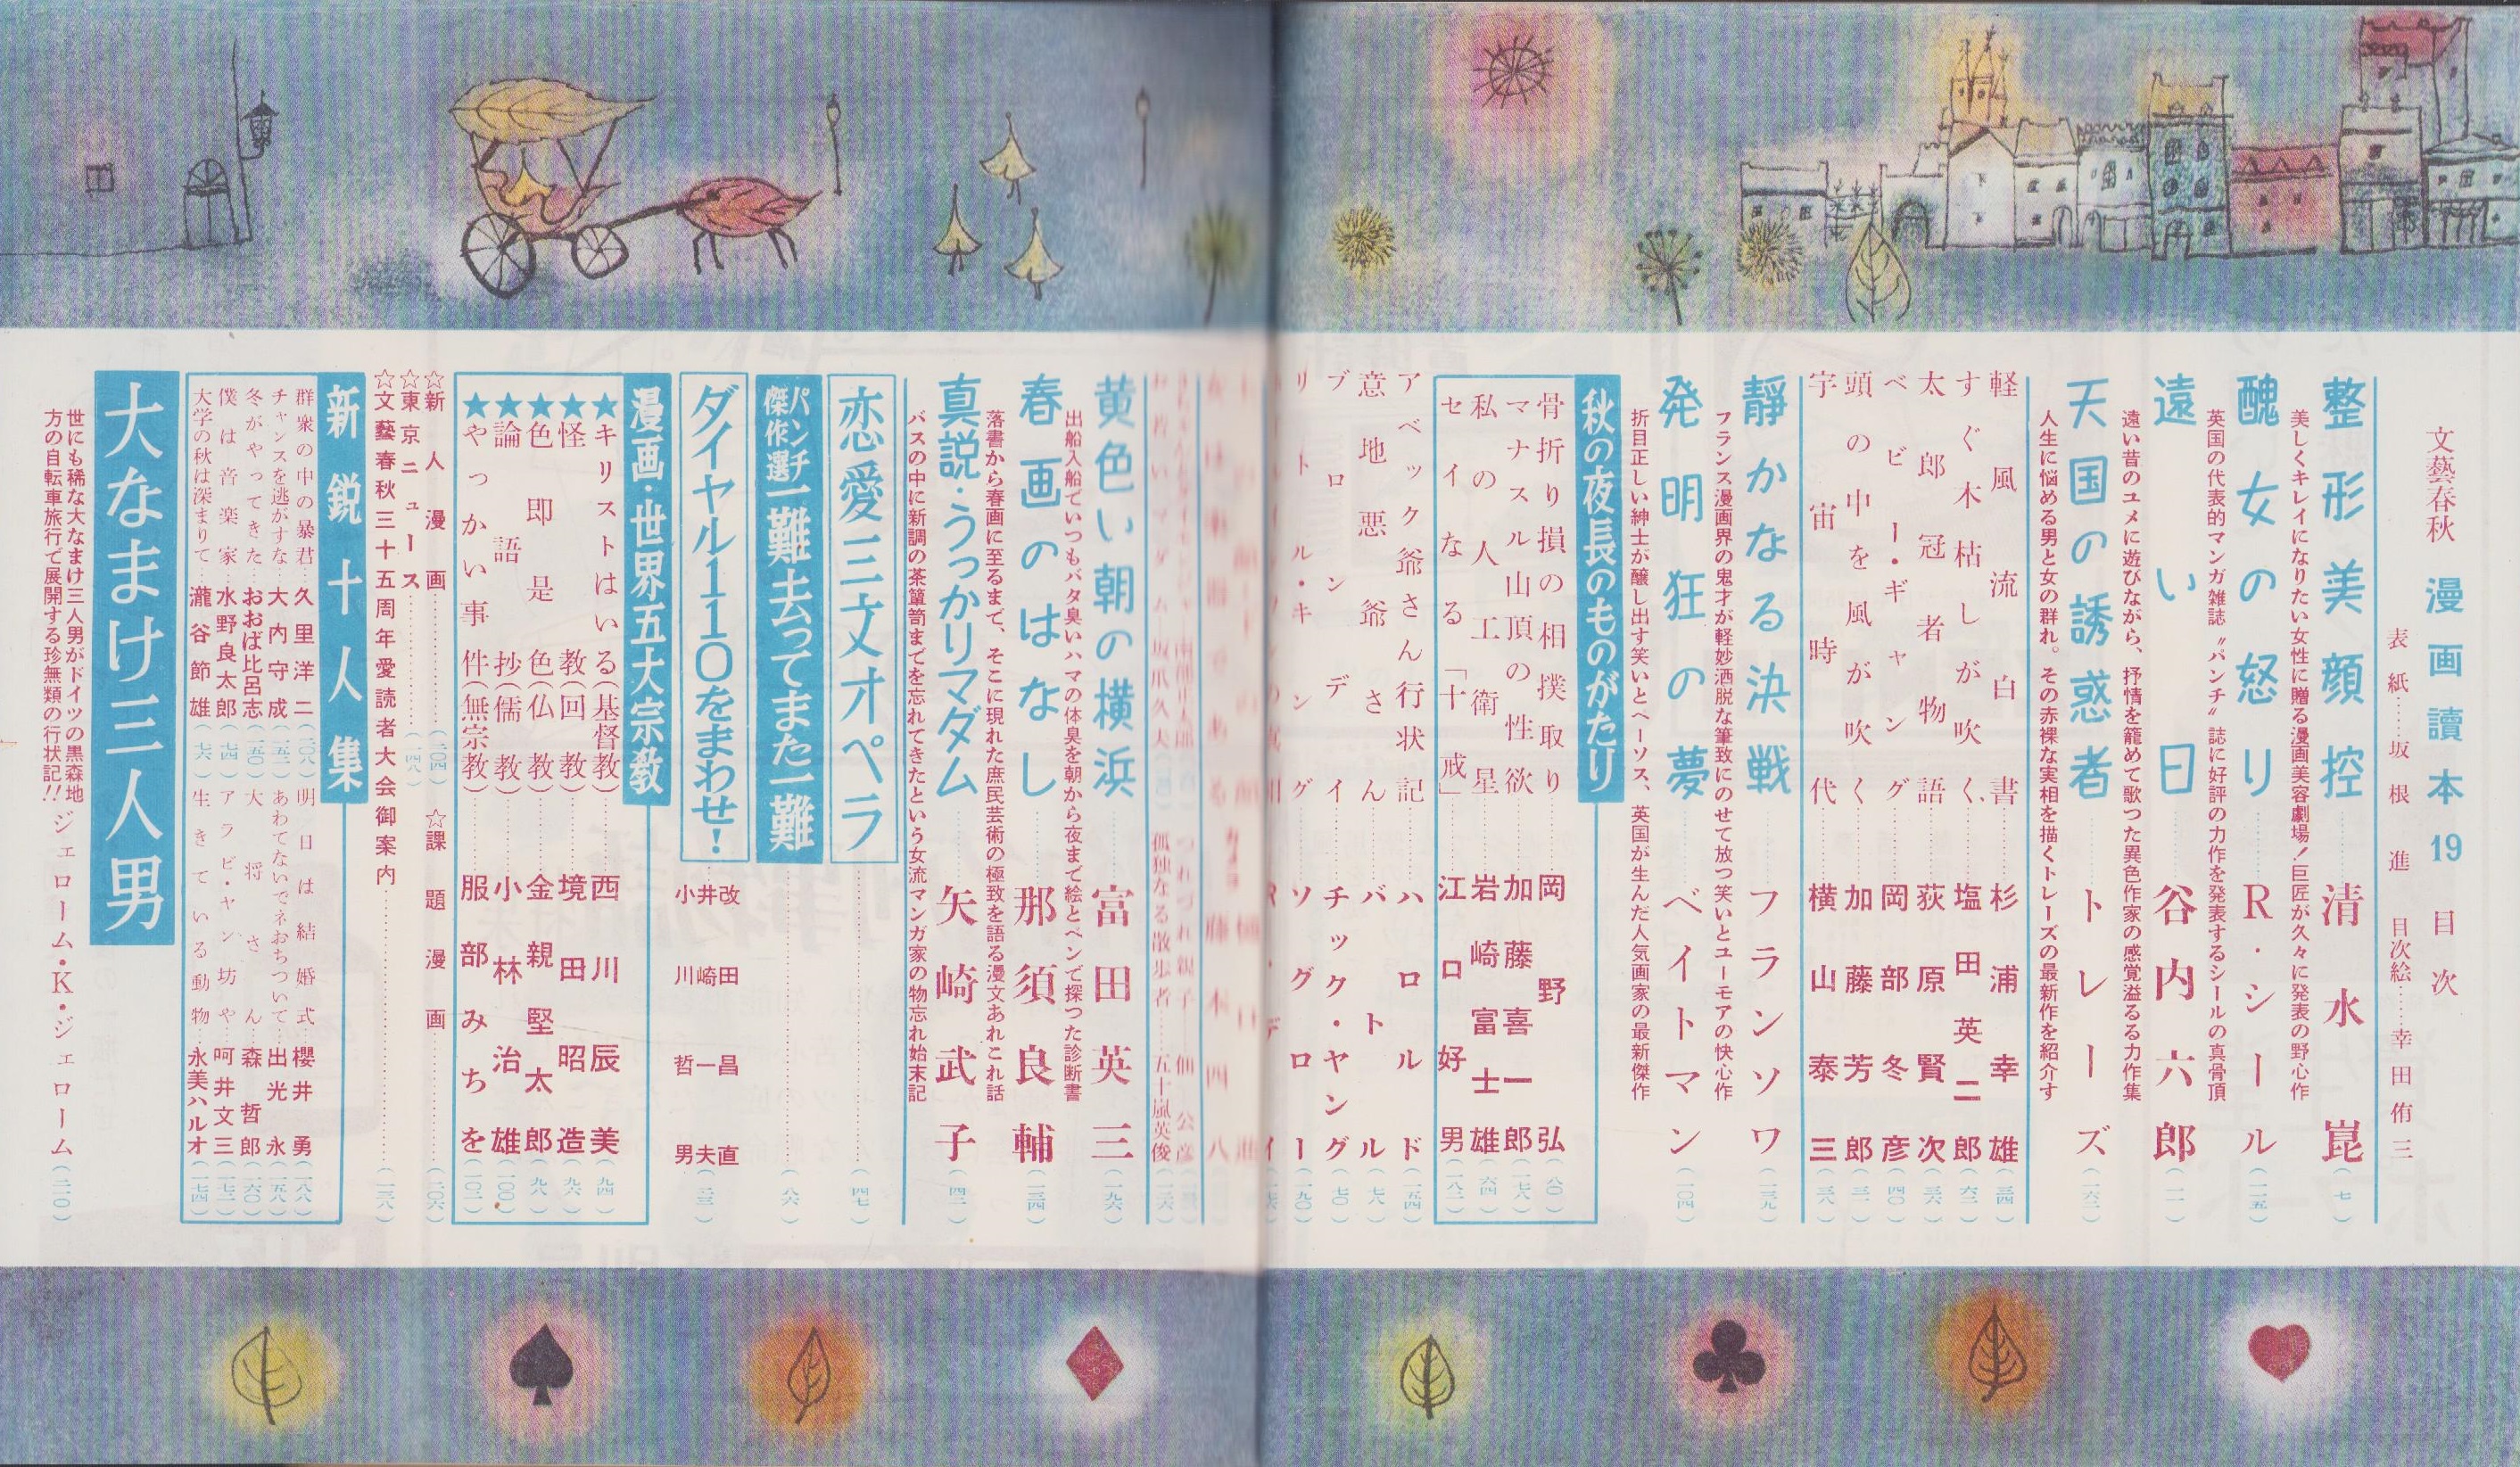 文藝春秋 漫画讀本 19 目次
表紙……坂根進 目次絵……幸田侑三
整形美顔控 清水崑(七)
美しくキレイになりたい女性に贈る漫画美容劇場!巨匠が久々に発表の野心作
醜女の怒り……R・シール(一一五)
英国の代表的マンガ雑誌〝パンチ〟誌に好評の力作を発表するシールの真骨頂
遠い日……谷内六郎(一一)
遠い昔のユメに遊びながら、抒情を籠めて歌つた異色作家の感覚溢るる力作集
天国の誘惑者……トレーズ(一六二)
人生に悩める男と女の群れ。その赤裸な実相を描くトレーズの最新作を紹介す
軽風流白書……杉浦幸雄(三四)
すぐ木枯しが吹く……塩田英二郎(六二)
太郎冠者物語……荻原賢次(三六)
ベビー・ギャング……岡部冬彦(四〇)
頭の中を風が吹く……加藤芳郎(三二)
宇宙時代……横山泰三(三八)
靜かなる決戦……フランソワ(一三九)
フランス漫画界の鬼才が軽妙洒脱な筆致にのせて放つ笑いとユーモアの快心作
発明狂の夢……ベイトマン(一〇四)
折目正しい紳士が醸し出す笑いとペーソス、英国が生んだ人気画家の最新傑作
秋の夜長のものがたり
骨折り損の相撲取り……岡野弘(八〇)
マナスル山頂の性欲……加藤喜一郎(一七八)
私の人工衛星……岩崎富士雄(六四)
セイなる「十戒」……江口好男(一八二)
アベック爺さん行状記……ハロルド(一五四)
意地悪爺さん……バトル(七八)
ブロンディイ……チック・ヤング(七〇)
リトル・キング……ソグロー(一九〇)
つれづれ親子……佃公彦
孤独なる散歩者……五十嵐英俊(一六六)
黄色い朝の横浜……富田英三(一九六)
出船入船でいつもバタ臭いハマの体臭を朝から夜まで絵とペンで探つた診断書
春画のはなし……那須良輔(一三四)
落書から春画に至るまで、そこに現れた庶民芸術の極致を語る漫文あれこれ話
真説・うっかりマダム……矢崎武子(四二)
バスの中に新調の茶簞笥までを忘れてきたという女流マンガ家の物忘れ始末記
恋愛三文オペラ……(四七)
パンチ傑作選 一難去ってまた一難……(八六)
ダイヤル110をまわせ!
改田昌直
井崎一夫
小川哲男
漫画・世界五大宗教
★キリストはいる(基督教)……西川辰美(九四)
★怪教(回教)……境田昭造(九六)
★色即是色(仏教)……金親堅太郎(九八)
★論語抄(儒教)……小林治雄(一〇〇)
★やっかい事件(無宗教)……服部みちを(一〇二)
☆新人漫画……(二〇四) ☆課題漫画……(二〇六)
☆東京ニュース……(一四八)
☆文藝春秋三十五周年愛読者大会御案内……(一三八)
新鋭十人集
群衆の中の暴君…久里洋二(二〇八) 明日は結婚式…櫻井勇(一八八)
チャンスを逃がすな…大内守成(一五二) あわてないでネおちついて…出光永(一五八)
冬がやってきた…おおば比呂志(一五〇) 大将さん…森哲郎(一六〇)
僕は音楽家…水野良太郎(一七四) アラビ・ヤン坊や…呵井文三(一七二)
大学の秋は深まりて…瀧谷節雄(七六) 生きている動物…永美ハルオ(一七四)
大なまけ三人男
世にも稀な大なまけ三人男がドイツの黒森地
方の自転車旅行で展開する珍無類の行状記!!
ジェローム・K・ジェローム(二一〇)